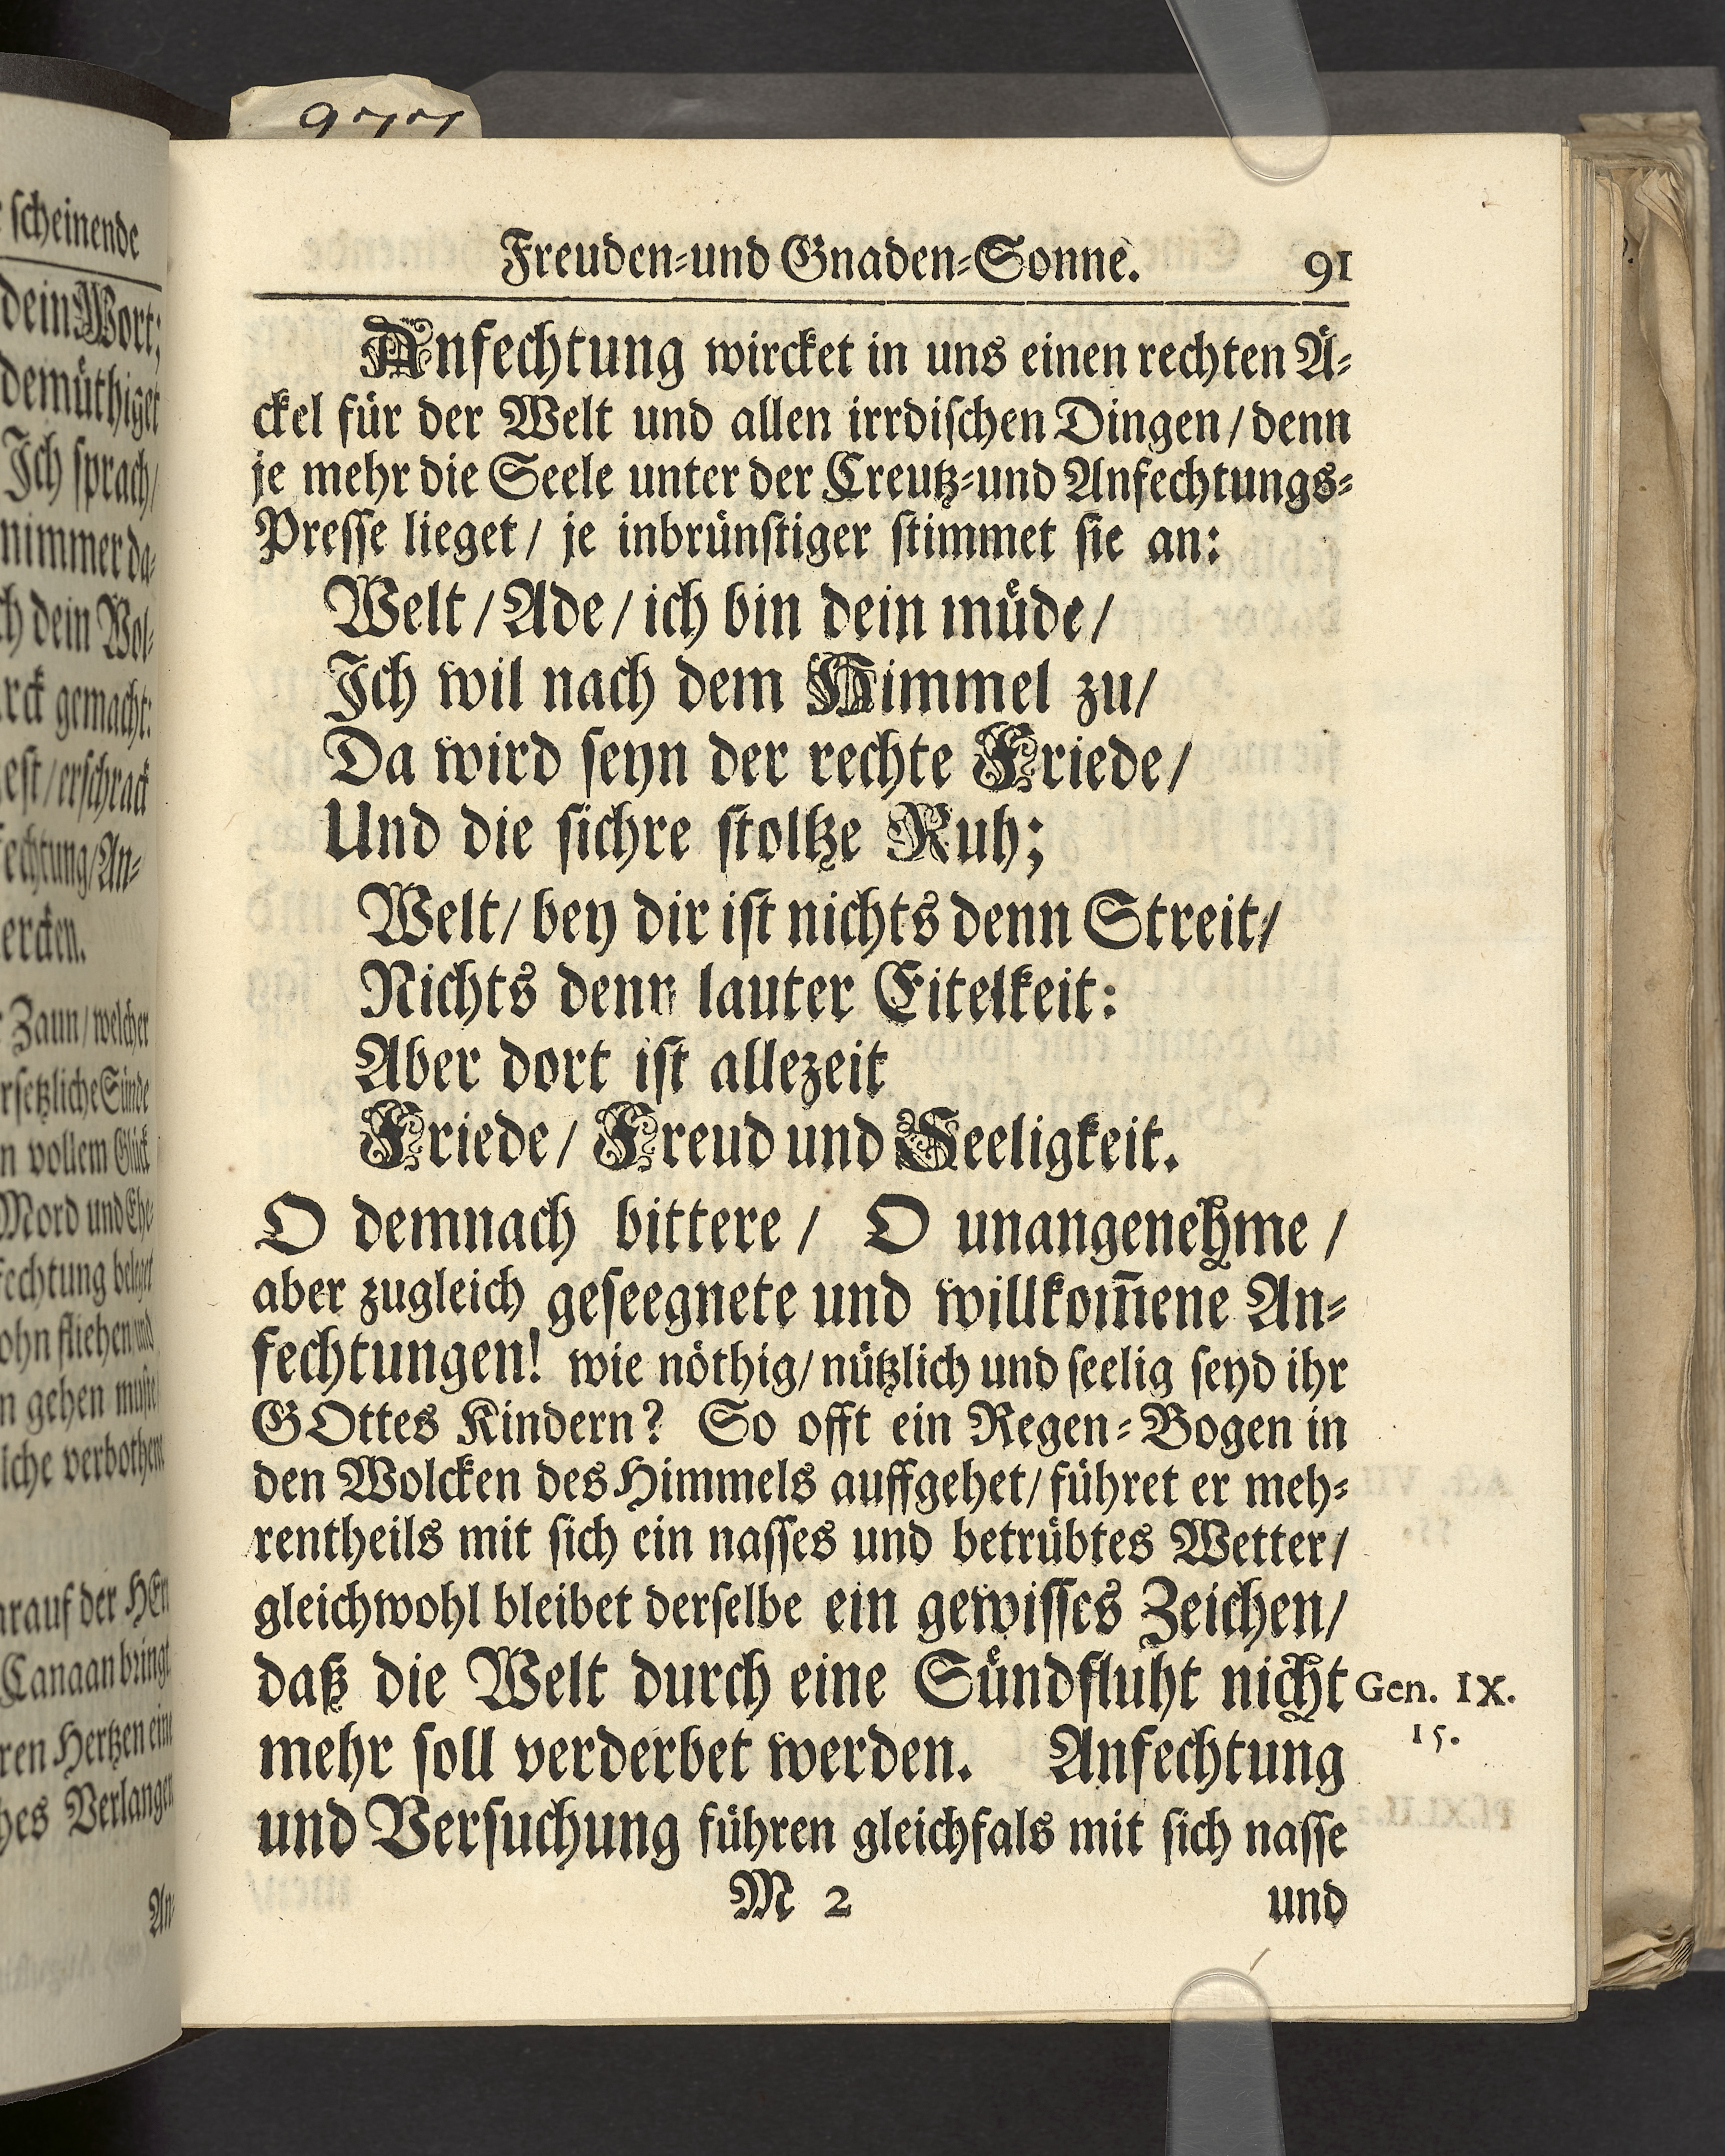 scheinende
dein Wort;
demüthiget
Ich sprach/
nimmer da-
dein Wol-
gemacht:
/erschrack
/An-
Zaun/welcher
Sünde
vollem Glück
Mord und Ehe-
gehen
verbothene
der HErr
Canaan bringt
Hertzen eine
Verlangen
An-
Freuden-und Gnaden-Sonne. 91
Anfechtung wircket in uns einen rechten Ä-
ckel für der Welt und allen irrdischen Dingen/denn
je mehr die Seele unter der Creutz-und Anfechtungs-
Presse lieget/ je inbrünstiger stimmet sie an:
Welt/Ade/ich bin dein müde/
Ich wil nach dem Himmel zu/
Da wird seyn der rechte Friede/
Und die sichre stoltze Ruh;
Welt/bey dir ist nichts denn Streit/
Nichts denn lauter Eitelkeit:
Aber dort ist allezeit
Friede/ Freud und Seeligkeit.
O demnach bittere/ O unangenehme/
aber zugleich geseegnete und willkom̄ene An-
fechtungen! wie nöthig/nützlich und seelig seyd ihr
GOttes Kindern? So offt ein Regen-Bogen in
den Wolcken des Himmels auffgehet/führet er meh-
rentheils mit sich ein nasses und betrübtes Wetter/
gleichwohl bleibet derselbe ein gewisses Zeichen/
daß die Welt durch eine Sündfluht nicht Gen. IX.
15.
mehr soll verderbet werden. Anfechtung
und Versuchung führen gleichfals mit sich nasse
M 2 und